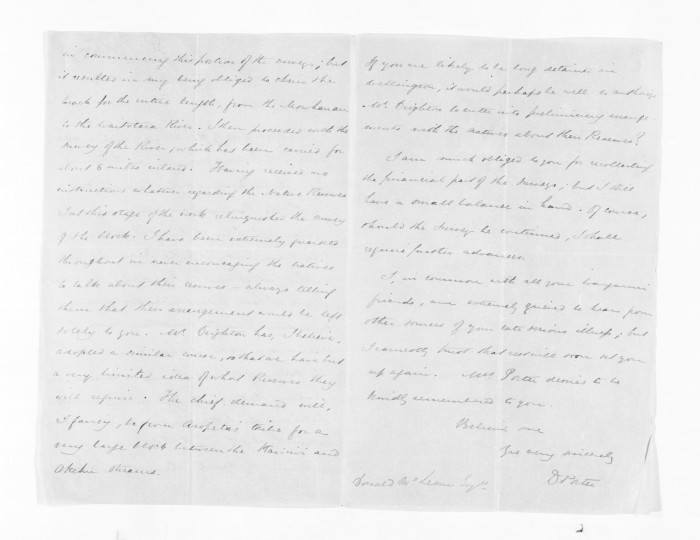 in commencing this portion of the survey; but
it resulted in my being obliged to chain the
back for the entire length, from the
to the Waitotara River. I then proceeded with the
survey of the River, which has been carried for
about 6 miles inland. Having received no
instructions whatever regarding the Native Reserves
I at this stage of the work relinquished the survey
of the block. I have been extremely guarded
throughout in never encouraging the natives
to talk about their reserves – always telling
them that their arrangement would be left
solely to you. Mr Deighton has, I believe,
adopted a similar course, so that we have but
a very limited idea of what Reserves they
will require. The chief demand will,
I fancy, be from tribe for a
very large block between the and
streams.
If you are likely to be long detained in
Wellington, it would perhaps be well to authorize
Mr Deighton to enter into preliminary arrange
ments with the natives about their Reserves?
I am much obliged to you for recollecting
the financial part of the Survey; but I still
have a small balance in hand. Of course,
should the Survey be continued, I shall
require further advances.
I, in common with all your Wanganui
friends, am extremely grieved to hear from
other sources of your late serious illness; but
I earnestly trust that rest will soon set you
up again. Mrs Porter desires to be
kindly remembered to you.
Believe me
Yrs very sincerely
D Porter
Donald McLean Esqre